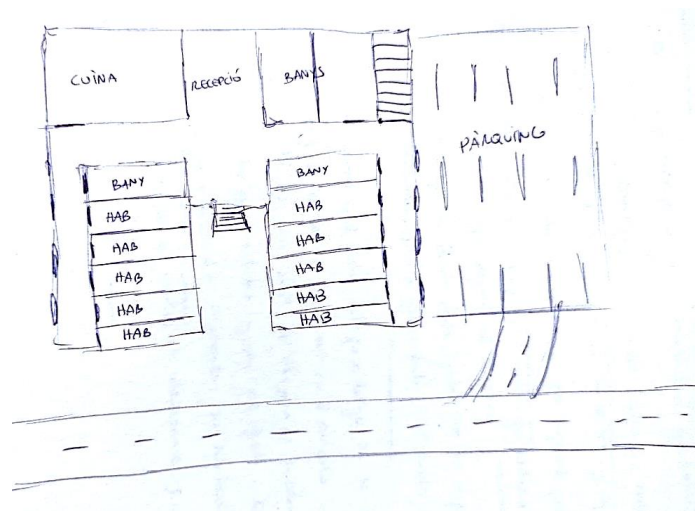 CUINA
RECEPCIÓ
BANYS
PÀRQUING
BANY
HAB
HAB
HAB
HAB
HAB
BANY
HAB
HAB
HAB
HAB
HAB